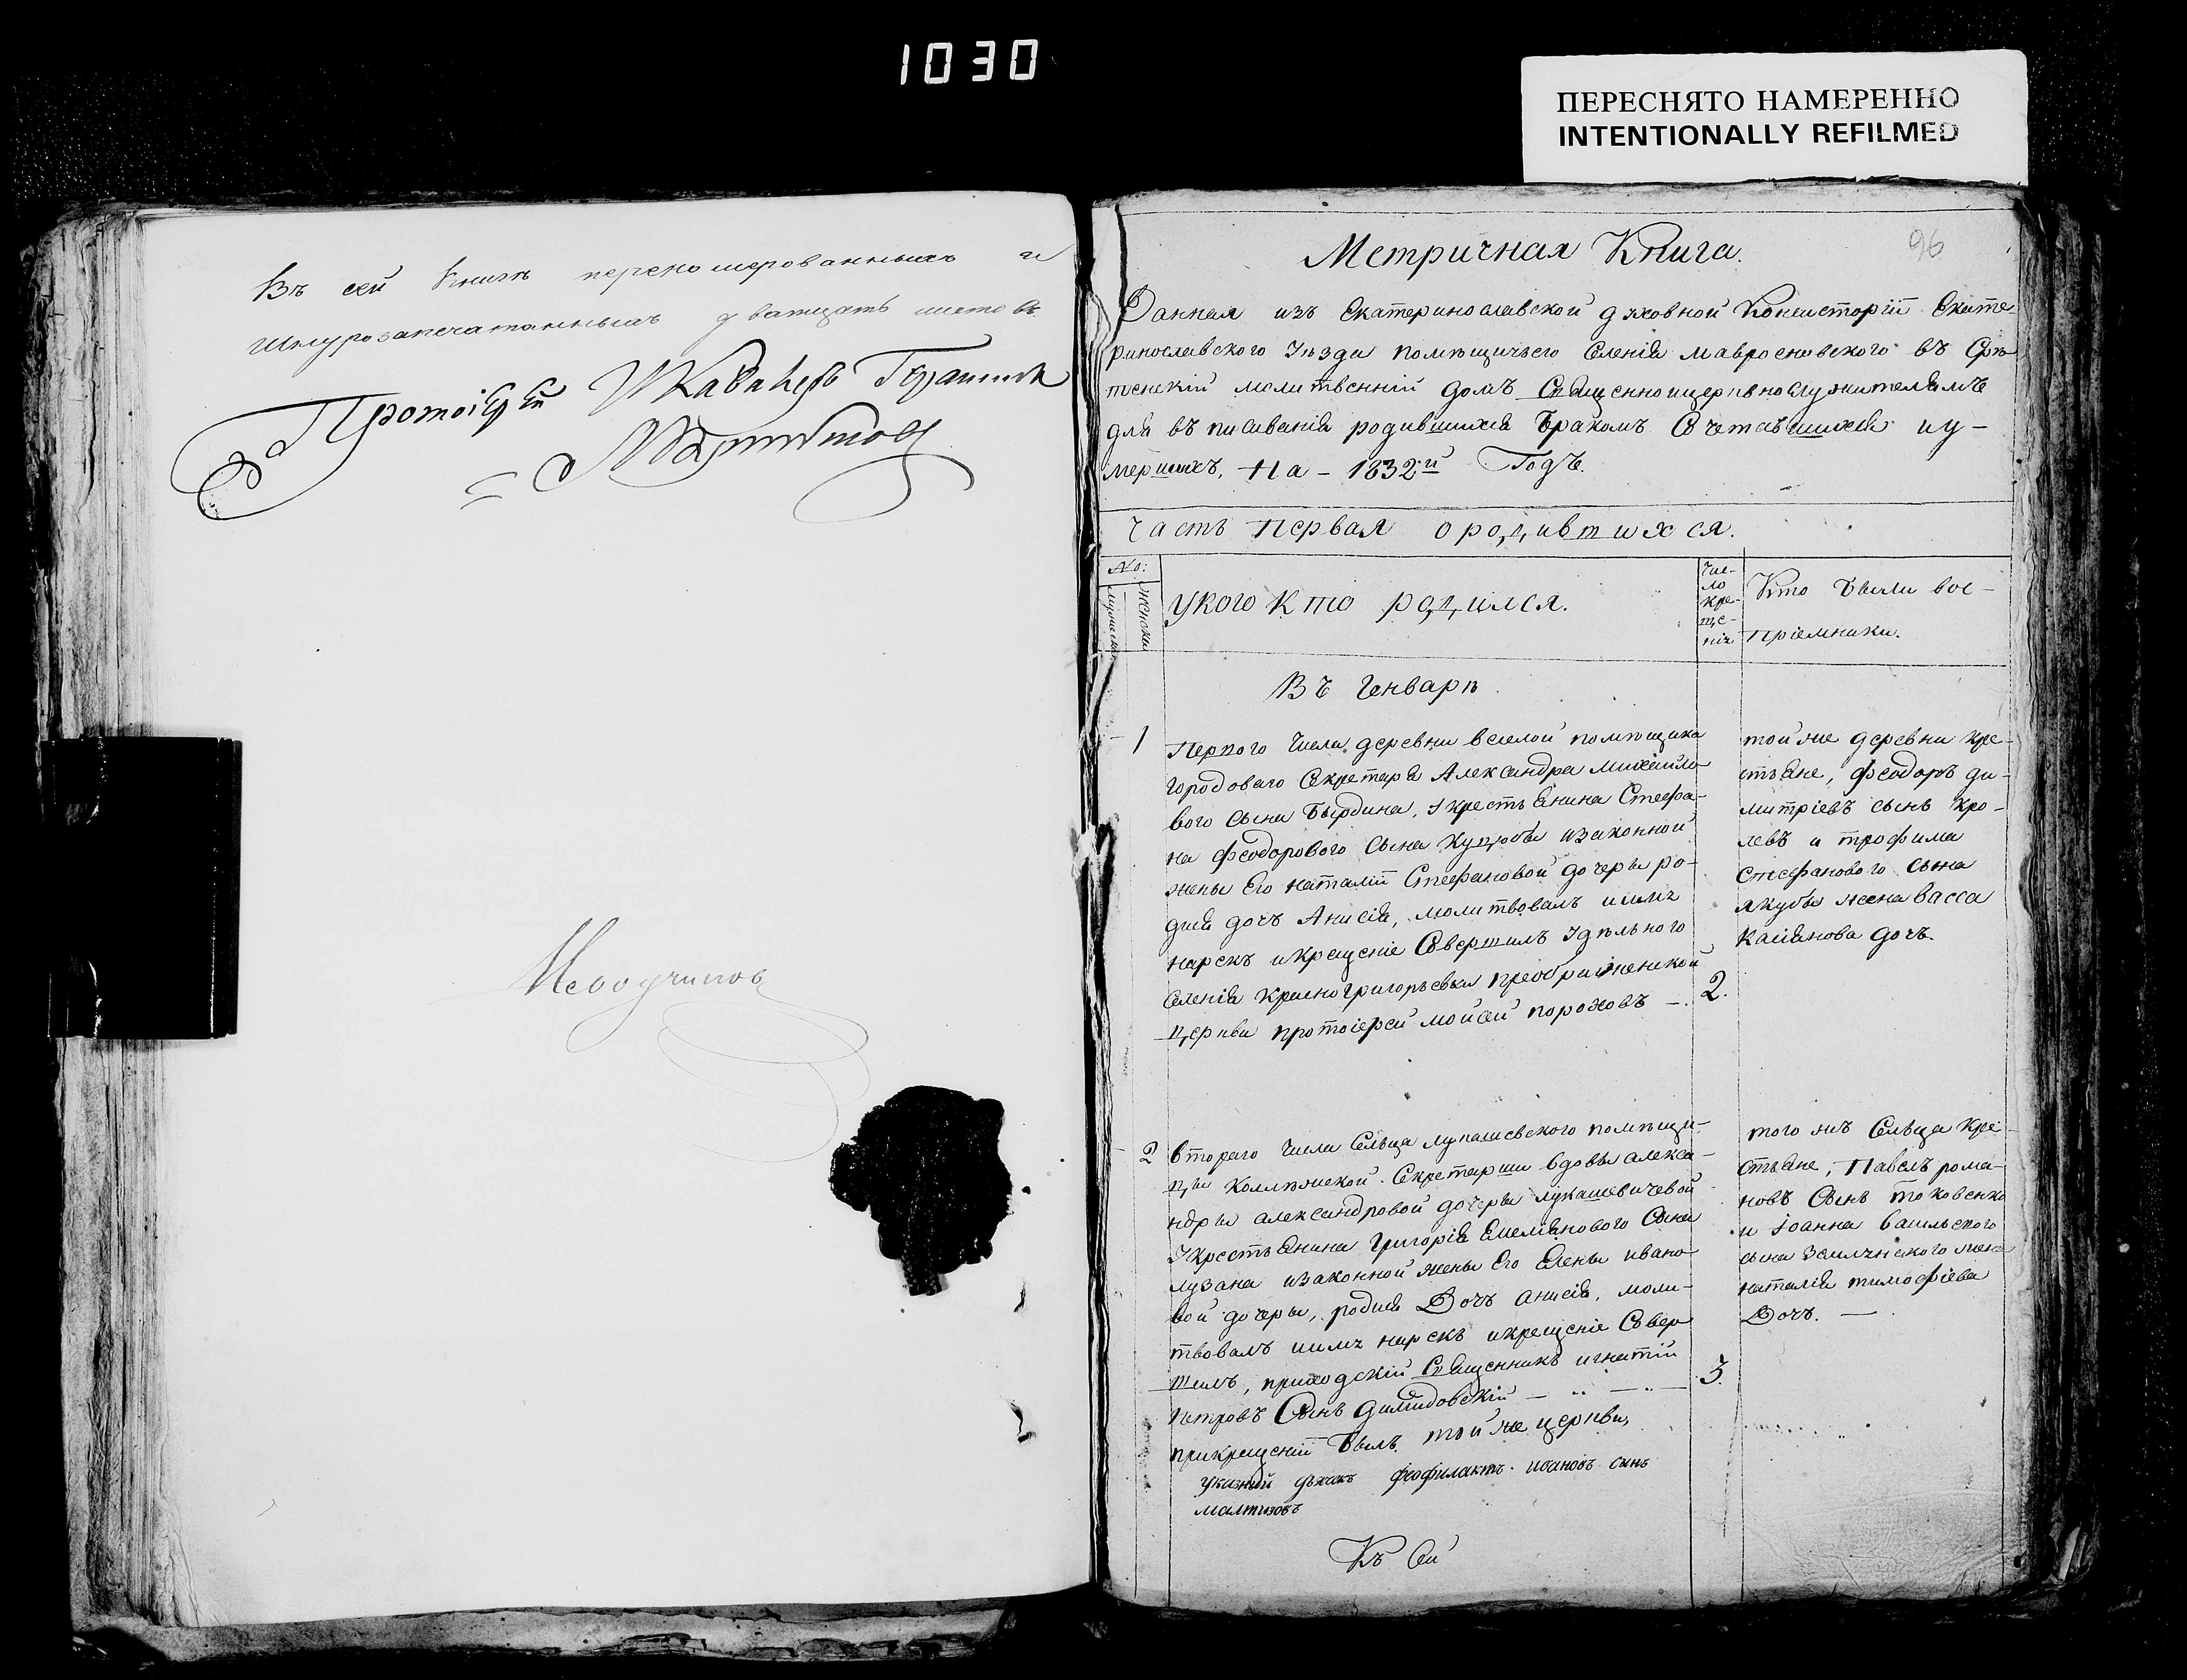 1030
ПЕРЕСНЯТО НАМЕРЕННО
INTENTIONALLY REFILMED
Въ сей книгѣ перенумерованныхъ и
шнурозапечатанныхъ дватцать листовъ
Протоіерей
96
Метричная Книга.
Данная изъ Екатеринославской духовной Консисторіи Екате
ринославского уѣзда помѣщичьего Селенія мавроеновского въ Срѣ
тенскій молитвенній домъ Священноцерковнослужителямъ
для въписиванія родившихся бракомъ Сочетавшихся и у-
мершихъ, На - 1832й Годъ.
Часть Первая о родившихся.
No:
мужеска
женска
У кого кто родился.
Чис-
ло
кре-
ще-
нія
Кто были вос-
пріемники.
Въ Генварѣ
1 Первого числа деревни веселой помѣщика
городоваго Секретаря Александра михайло-
вого сына Бырдина, у крестьянина Стефа-
на феодорового сына изаконной
жены Его наталіи Стефановой дочеры ро-
дися дочъ Анисія, молитвовалъ иимя
нарекъ икрещеніе Совершилъ удѣльного
Селенія Красногригорьевки преображенской
церкви протоіерей мойсей пороховъ — 2.
той же деревни кре-
стьяне, феодоръ ди-
митріевъ сынъ кро-
левъ и трофима
стефанового сына
якубы жена васса
касіянова дочъ.
2 втораго числа Сельца лукашевского помѣщи-
цы коллѣжской Секретарши вдовы алекса-
ндры александровой дочеры лукашевичевой
у крестьянина Григорія Емеліянового Сына
лузана изаконной жены Его Елены ивано
вой дочеры, родися Дочъ анисія, моли-
твовалъ иимя нарекъ икрещеніе Совер
шилъ, приходскій Священникъ игнатій
петровъ Сынъ — 3.
прикрещеніи былъ той же церкви,
указный дьячокъ феофилактъ ивановъ сынъ
того жъ Сельца кре-
стьяне, Павелъ рома-
новъ Сынъ токовенко
и іоанна васильского
сына жена
наталія тимофіева
Дочъ. —
Къ Сей